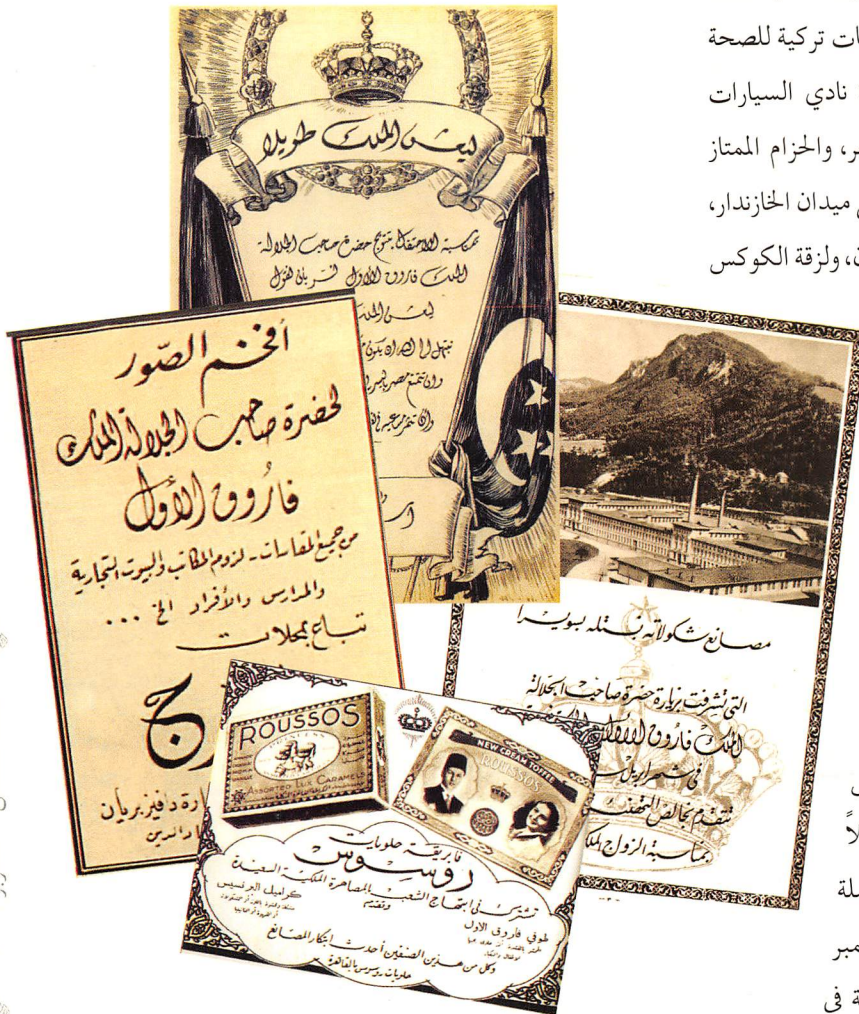 ات تركية للصحة
نادي السيارات
ر، والحزام الممتاز
ميدان الخازندار،
ولزقة الكوكس
ليعش الملك طويلا
بمناسبة الاحتفال بتتويج حضرة صاحب الجلالة
الملك فاروق الأول نتشرف بأن نقول
ليعش الملك
نبتهل إلى الله ان يكون
وان تتمتع مصر
وان
أفخم الصّور
لحضرة صاحب الجلالة الملك
فاروق الأول
من جميع المقاسات - لزوم المكاتب والبيوت التجارية
والمدارس والأفراد الخ ...
تباع بمحلات
ج
رة دافيز بريان
عدلين
مصانع شكولاته نستله بسويسرا
التي تشرفت بزيارة حضرة صاحب الجلالة
الملك فاروق الأول
في شهر ابريل
تتقدم بخالص التهنئة
بمناسبة الزواج الملكي
ROUSSOS
ASSORTED LUX CARAMELS
NEW CREAM TOFFEE
ROUSSOS
فابريقة حلويات
روسوس
تشترك في ابتهاج الشعب بالمصاهرة الملكية السعيدة
وتقديم
طوفي فاروق الاول
كراميل البرنسيس
وكل من هذين الصنفين أحدث ابتكار المصانع
حلويات روسوس بالقاهرة
لاً
ملة
مبر
ة في